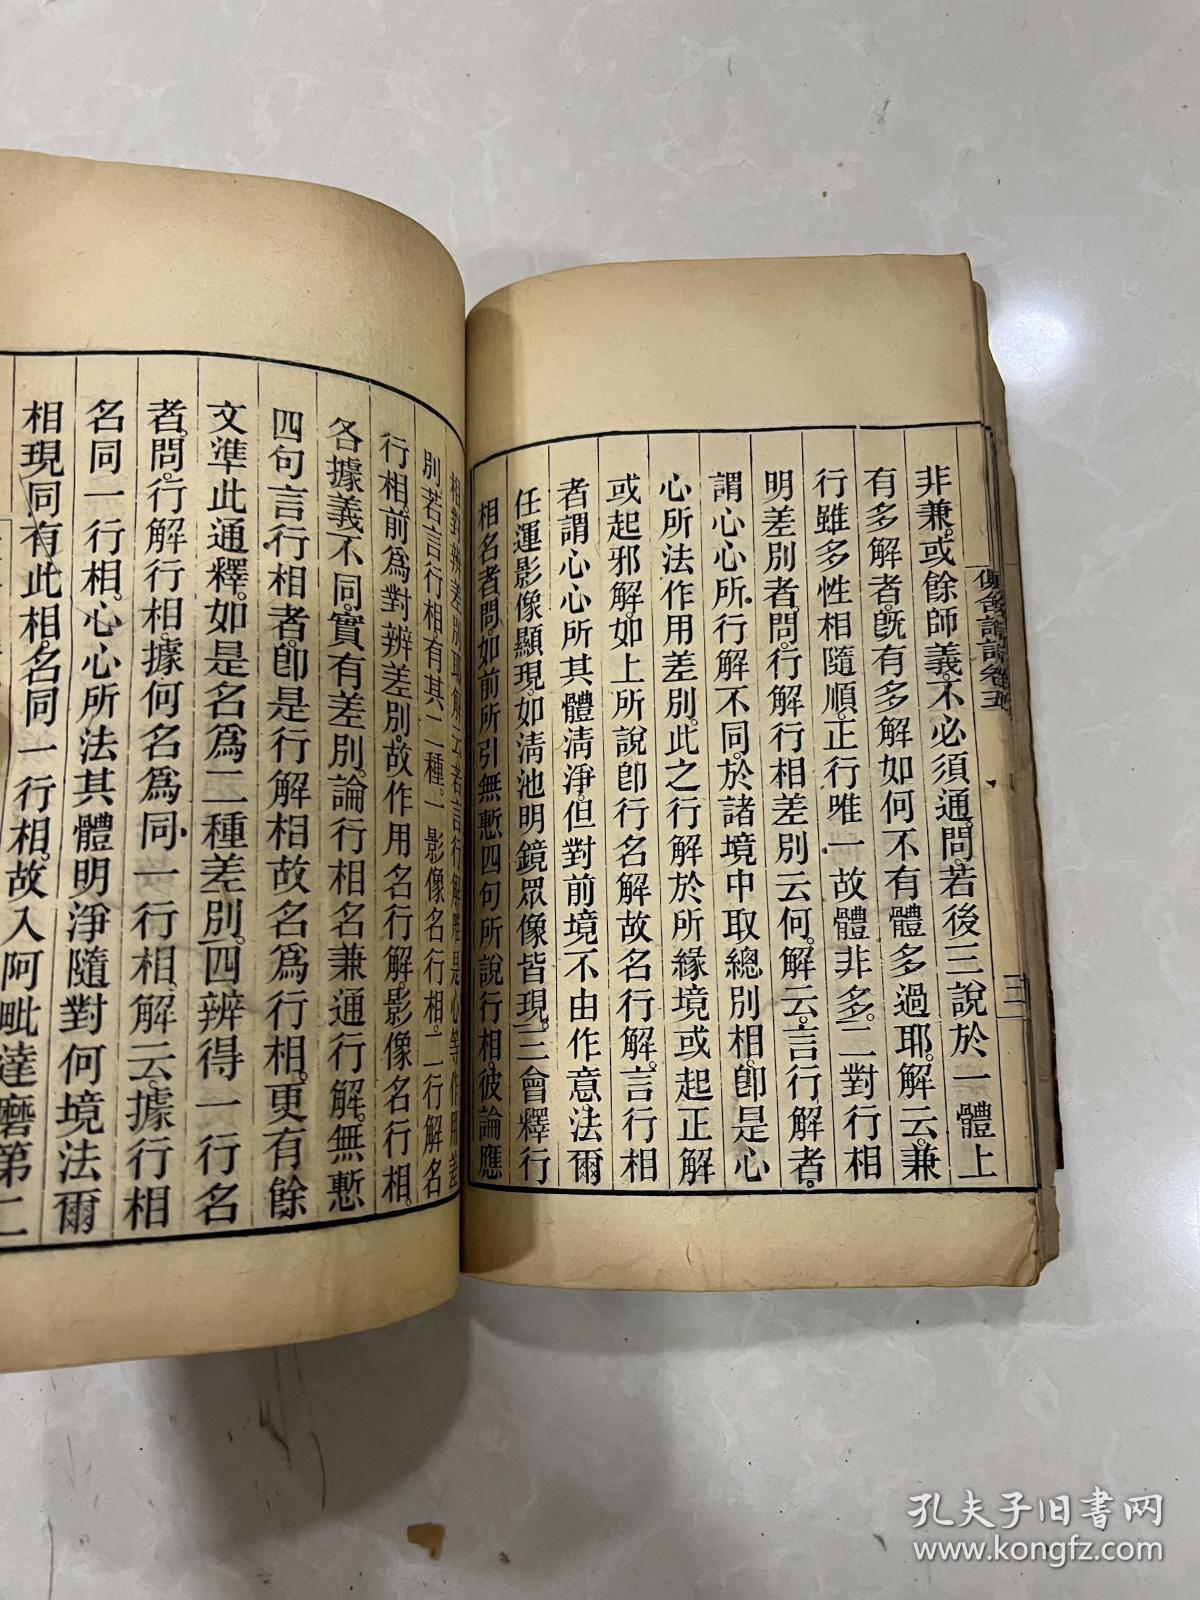 俱舍論記卷五
三
非兼。或餘師義。不必須通。問。若後三說於一體上
有多解者。旣有多解如何不有體多過耶。解云。兼
行雖多性相隨順。正行唯一故體非多。二對行相
明差別者。問。行解行相差別云何。解云。言行解者。
謂心心所行解不同。於諸境中取總別相。卽是心
心所法作用差別。此之行解於所緣境或起正解
或起邪解。如上所說卽行名解故名行解。言行相
者謂心心所其體清淨。但對前境不由作意法爾
任運影像顯現。如清池明鏡眾像皆現。三會釋行
相名者。問。如前所引無慙四句所說行相。彼論應
相對辨差別耶。解云。若言行解唯是心等作用差
別。若言行相。有其二種。一影像名行相。二行解名
行相。前爲對辨差別。故作用名行解。影像名行相。
各據義不同。實有差別。論行相名兼通行解。無慙
四句言行相者。卽是行解相故名爲行相。更有餘
文準此通釋。如是名爲二種差別。四辨得一行名
者。問。行解行相。據何名爲同一行相。解云。據行相
名同一行相。心心所法其體明淨隨對何境法爾
相現同有此相。名同一行相。故入阿毗達磨第二
孔夫子旧书网
www.kongfz.com